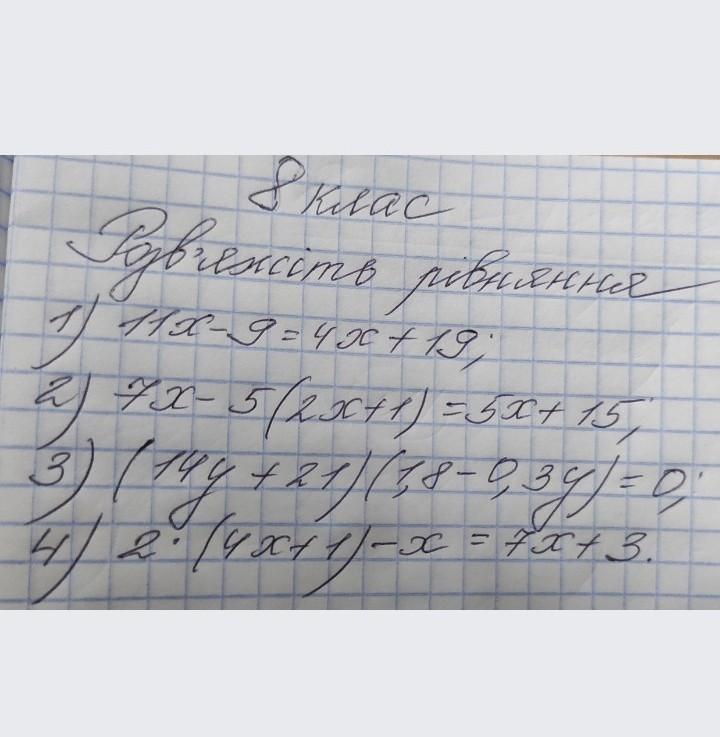 8 клас
Розв'яжіть рівняння
1) 11x - 9 = 4x + 19;
2) 7x - 5(2x+1) = 5x + 15;
3) (14y + 21)(1,8 - 0,3y) = 0;
4) 2·(4x+1) - x = 7x + 3.